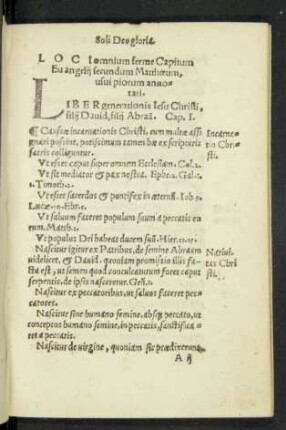 Soli Deo gloria.
LOCI omnium ferme Capitum
Euangelij secundum Mattheum,
usui piorum anno-
tati.
LIBER generationis Iesu Christi,
filij Dauid, filij Abraã. Cap. I.
¶ Causæ incarnationis Christi, cum multæ assi-
gnari possint, potissimum tamen hæ ex scripturis
sacris colliguntur.
Incarna-
tio Chri-
sti.
Ut esset caput super omnem Ecclesiam. Col. 1.
Ut sit mediator & pax nostra. Ephe. 2. Gal. 3.
1. Timoth. 2.
Ut esset sacerdos & pontifex in æternũ. Iob. 9
Lucæ Ebr.
Ut saluum faceret populum suum a peccatis eo-
rum. Matth. 1.
Ut populus Dei habeat ducem suũ. Hier.
Nascitur igitur ex Patribus, de semine Abraam
uidelicet, & Dauid. quoniam promissio illis fa-
cta est, ut semen quod conculcaturum foret caput
serpentis, de ipsis nasceretur. Gen.
Natiui-
tas Chri
sti.
Nascitur ex peccatoribus, ut saluos faceret pec-
catores.
Nascitur sine humano semine, absq; peccato, ut
conceptos humano semine, in peccatis, sanctificaret
a peccatis.
Nascitur de uirgine, quoniam sic prædixerunt
A ij